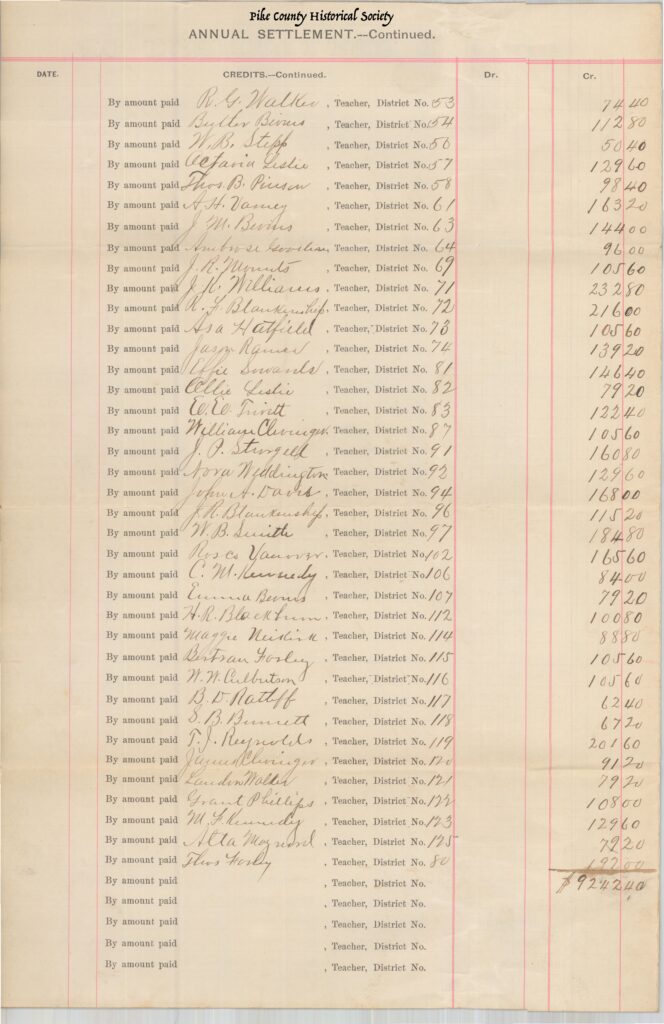 Pike County Historical Society
ANNUAL SETTLEMENT.—Continued.
DATE. CREDITS.—Continued. Dr. Cr.
By amount paid R. G. Walker, Teacher, District No. 53 74 40
By amount paid Butler Bevins, Teacher, District No. 54 112 80
By amount paid W. B. Stepp, Teacher, District No. 56 50 40
By amount paid Octavia Leslie, Teacher, District No. 57 129 60
By amount paid Thos. B. Pinson, Teacher, District No. 58 98 40
By amount paid A. H. Varney, Teacher, District No. 61 163 20
By amount paid J. M. Bevins, Teacher, District No. 63 144 00
By amount paid Ambrose, Teacher, District No. 64 96 00
By amount paid J. R. Mounts, Teacher, District No. 69 105 60
By amount paid J. K. Williams, Teacher, District No. 71 232 80
By amount paid R. F. Blankenship, Teacher, District No. 72 216 00
By amount paid Asa Hatfield, Teacher, District No. 73 105 60
By amount paid Jason Ramey, Teacher, District No. 74 139 20
By amount paid Effie Sowards, Teacher, District No. 81 146 40
By amount paid Ollie Leslie, Teacher, District No. 82 79 20
By amount paid E. E. Trivett, Teacher, District No. 83 122 40
By amount paid William Clevinger, Teacher, District No. 87 105 60
By amount paid J. P. Sturgell, Teacher, District No. 91 160 80
By amount paid Nora Weddington, Teacher, District No. 92 129 60
By amount paid John A. Davis, Teacher, District No. 94 168 00
By amount paid J. R. Blankenship, Teacher, District No. 96 115 20
By amount paid W. B. Smith, Teacher, District No. 97 184 80
By amount paid Roscoe Vanover, Teacher, District No. 102 165 60
By amount paid C. M. Kennedy, Teacher, District No. 106 84 00
By amount paid Emma Bevins, Teacher, District No. 107 79 20
By amount paid H. R. Blackburn, Teacher, District No. 112 100 80
By amount paid Maggie, Teacher, District No. 114 88 80
By amount paid Bertran Fosley, Teacher, District No. 115 105 60
By amount paid W. W. Culbertson, Teacher, District No. 116 105 60
By amount paid B. D. Ratliff, Teacher, District No. 117 62 40
By amount paid S. B. Burnett, Teacher, District No. 118 67 20
By amount paid T. J. Reynolds, Teacher, District No. 119 201 60
By amount paid James Clevinger, Teacher, District No. 120 91 20
By amount paid Landon Walter, Teacher, District No. 121 79 20
By amount paid Grant Phillips, Teacher, District No. 122 108 00
By amount paid M. F. Kennedy, Teacher, District No. 123 129 60
By amount paid Atta Maynord, Teacher, District No. 125 79 20
By amount paid Thos Fosley, Teacher, District No. 80 192 00
By amount paid , Teacher, District No. $9242 40
By amount paid , Teacher, District No.
By amount paid , Teacher, District No.
By amount paid , Teacher, District No.
By amount paid , Teacher, District No.